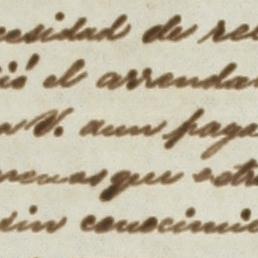 cesidad de re
ió el arrenda
a V. aun paga
menos que otr
sin conocimie